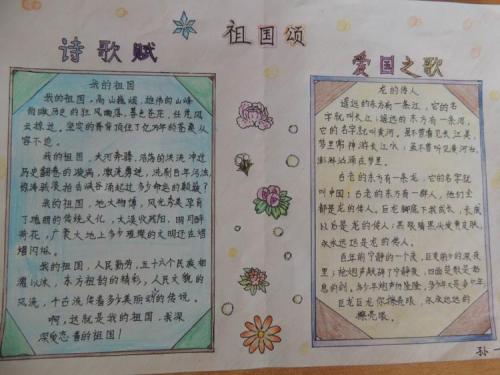 祖国颂
诗歌赋
我的祖国
我的祖国，高山巍峨，雄伟的山峰
俯瞰历史的狂风幽落，暮色苍茫，任凭风
云掠过。坚实的脊背顶住了亿万年的沧桑从
容不迫。
我的祖国，大河奔腾，浩荡的洪流冲过
历史翻卷的漩涡，激流勇进，洗刷百年污浊，
惊涛骇浪拍击峡谷涌起过多少命运的颠簸？
我的祖国，地大物博，风光秀美孕育
了瑰丽的传统文化，大漠收残阳，明月醉
荷花，广袤大地上多少璀璨的文明还在熠
熠闪烁。
我的祖国，人民勤劳，五十六个民族相
濡以沫，东方神韵的精彩，人民文貌的
风流，千古流传着多少美丽动的传说。
啊，这就是我的祖国，我深
深爱恋着的祖国！
爱国之歌
龙的传人
遥远的东方有一条江，它的名
字就叫长江；遥远的东方有一条河，
它的名字就叫黄河。虽不曾看见长江美，
梦里常神游长江水；虽不曾听见黄河壮，
澎湃汹涌在梦里。
古老的东方有一条龙，它的名字
就叫中国；古老的东方有一群人，他们全
都是龙的传人。巨龙脚底下我成长，长成
以后是龙的传人；黑眼睛黑头发黄皮肤，
永永远远是龙的传人。
百年前宁静的一个夜，巨变前夕的深夜
里；枪炮声敲碎了宁静夜，四面楚歌是姑
息的剑。多少年炮声仍隆隆，多少年又是多少年，
巨龙巨龙你擦亮眼，永永远远的
擦亮眼。
孙一